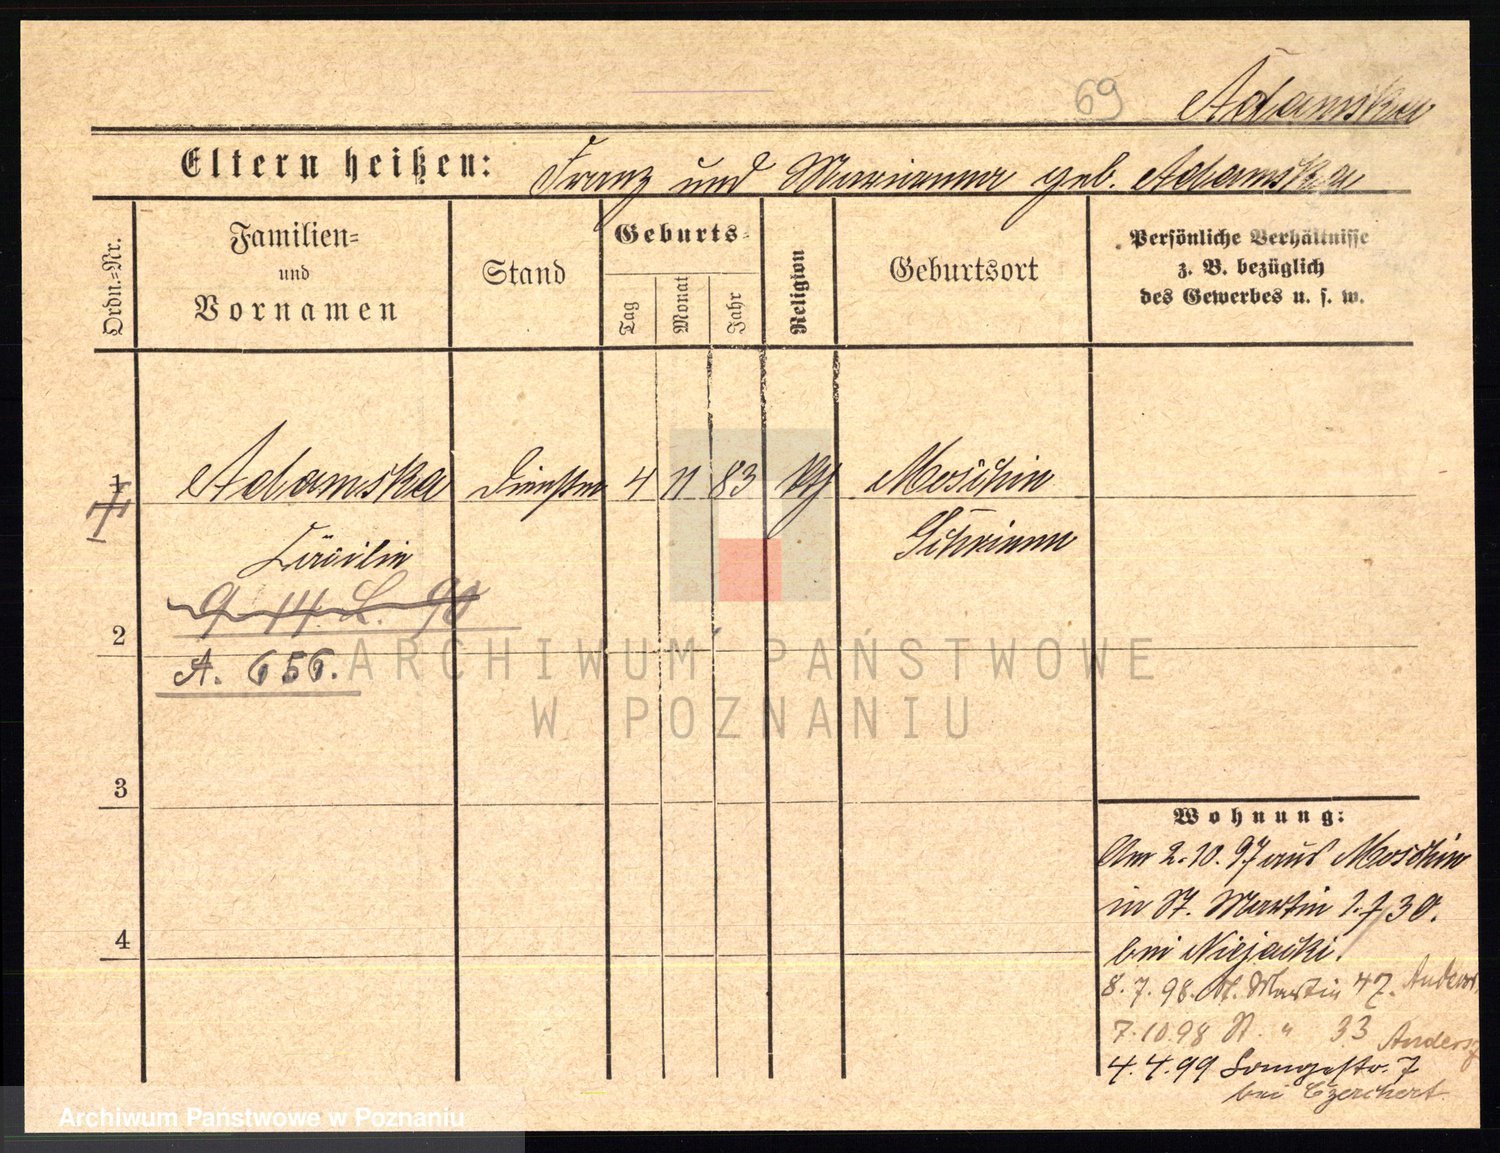 69 Adamska
Eltern heißen: Franz und Marianna geb. Adamska
Ordn.=Nr.
Familien=
und
Vornamen
Stand
Geburts=
Tag
Monat
Jahr
Religion
Geburtsort
Persönliche Verhältnisse
z. B. bezüglich
des Gewerbes u. s. w.
1 Adamska 4 11 83 kth Moschin
Cäcilie Schrimm
2
A. 656.
3
4
Wohnung:
Am 2.10.97 aus Moschin
in St. Martin 30.
bei Niejacki.
8.7.98. St. Martin 47.
7.10.98 St. " 33 Andersz
4.4.99 Langestr. 7
bei Czerchert
ARCHIWUM PAŃSTWOWE
W POZNANIU
Archiwum Państwowe w Poznaniu